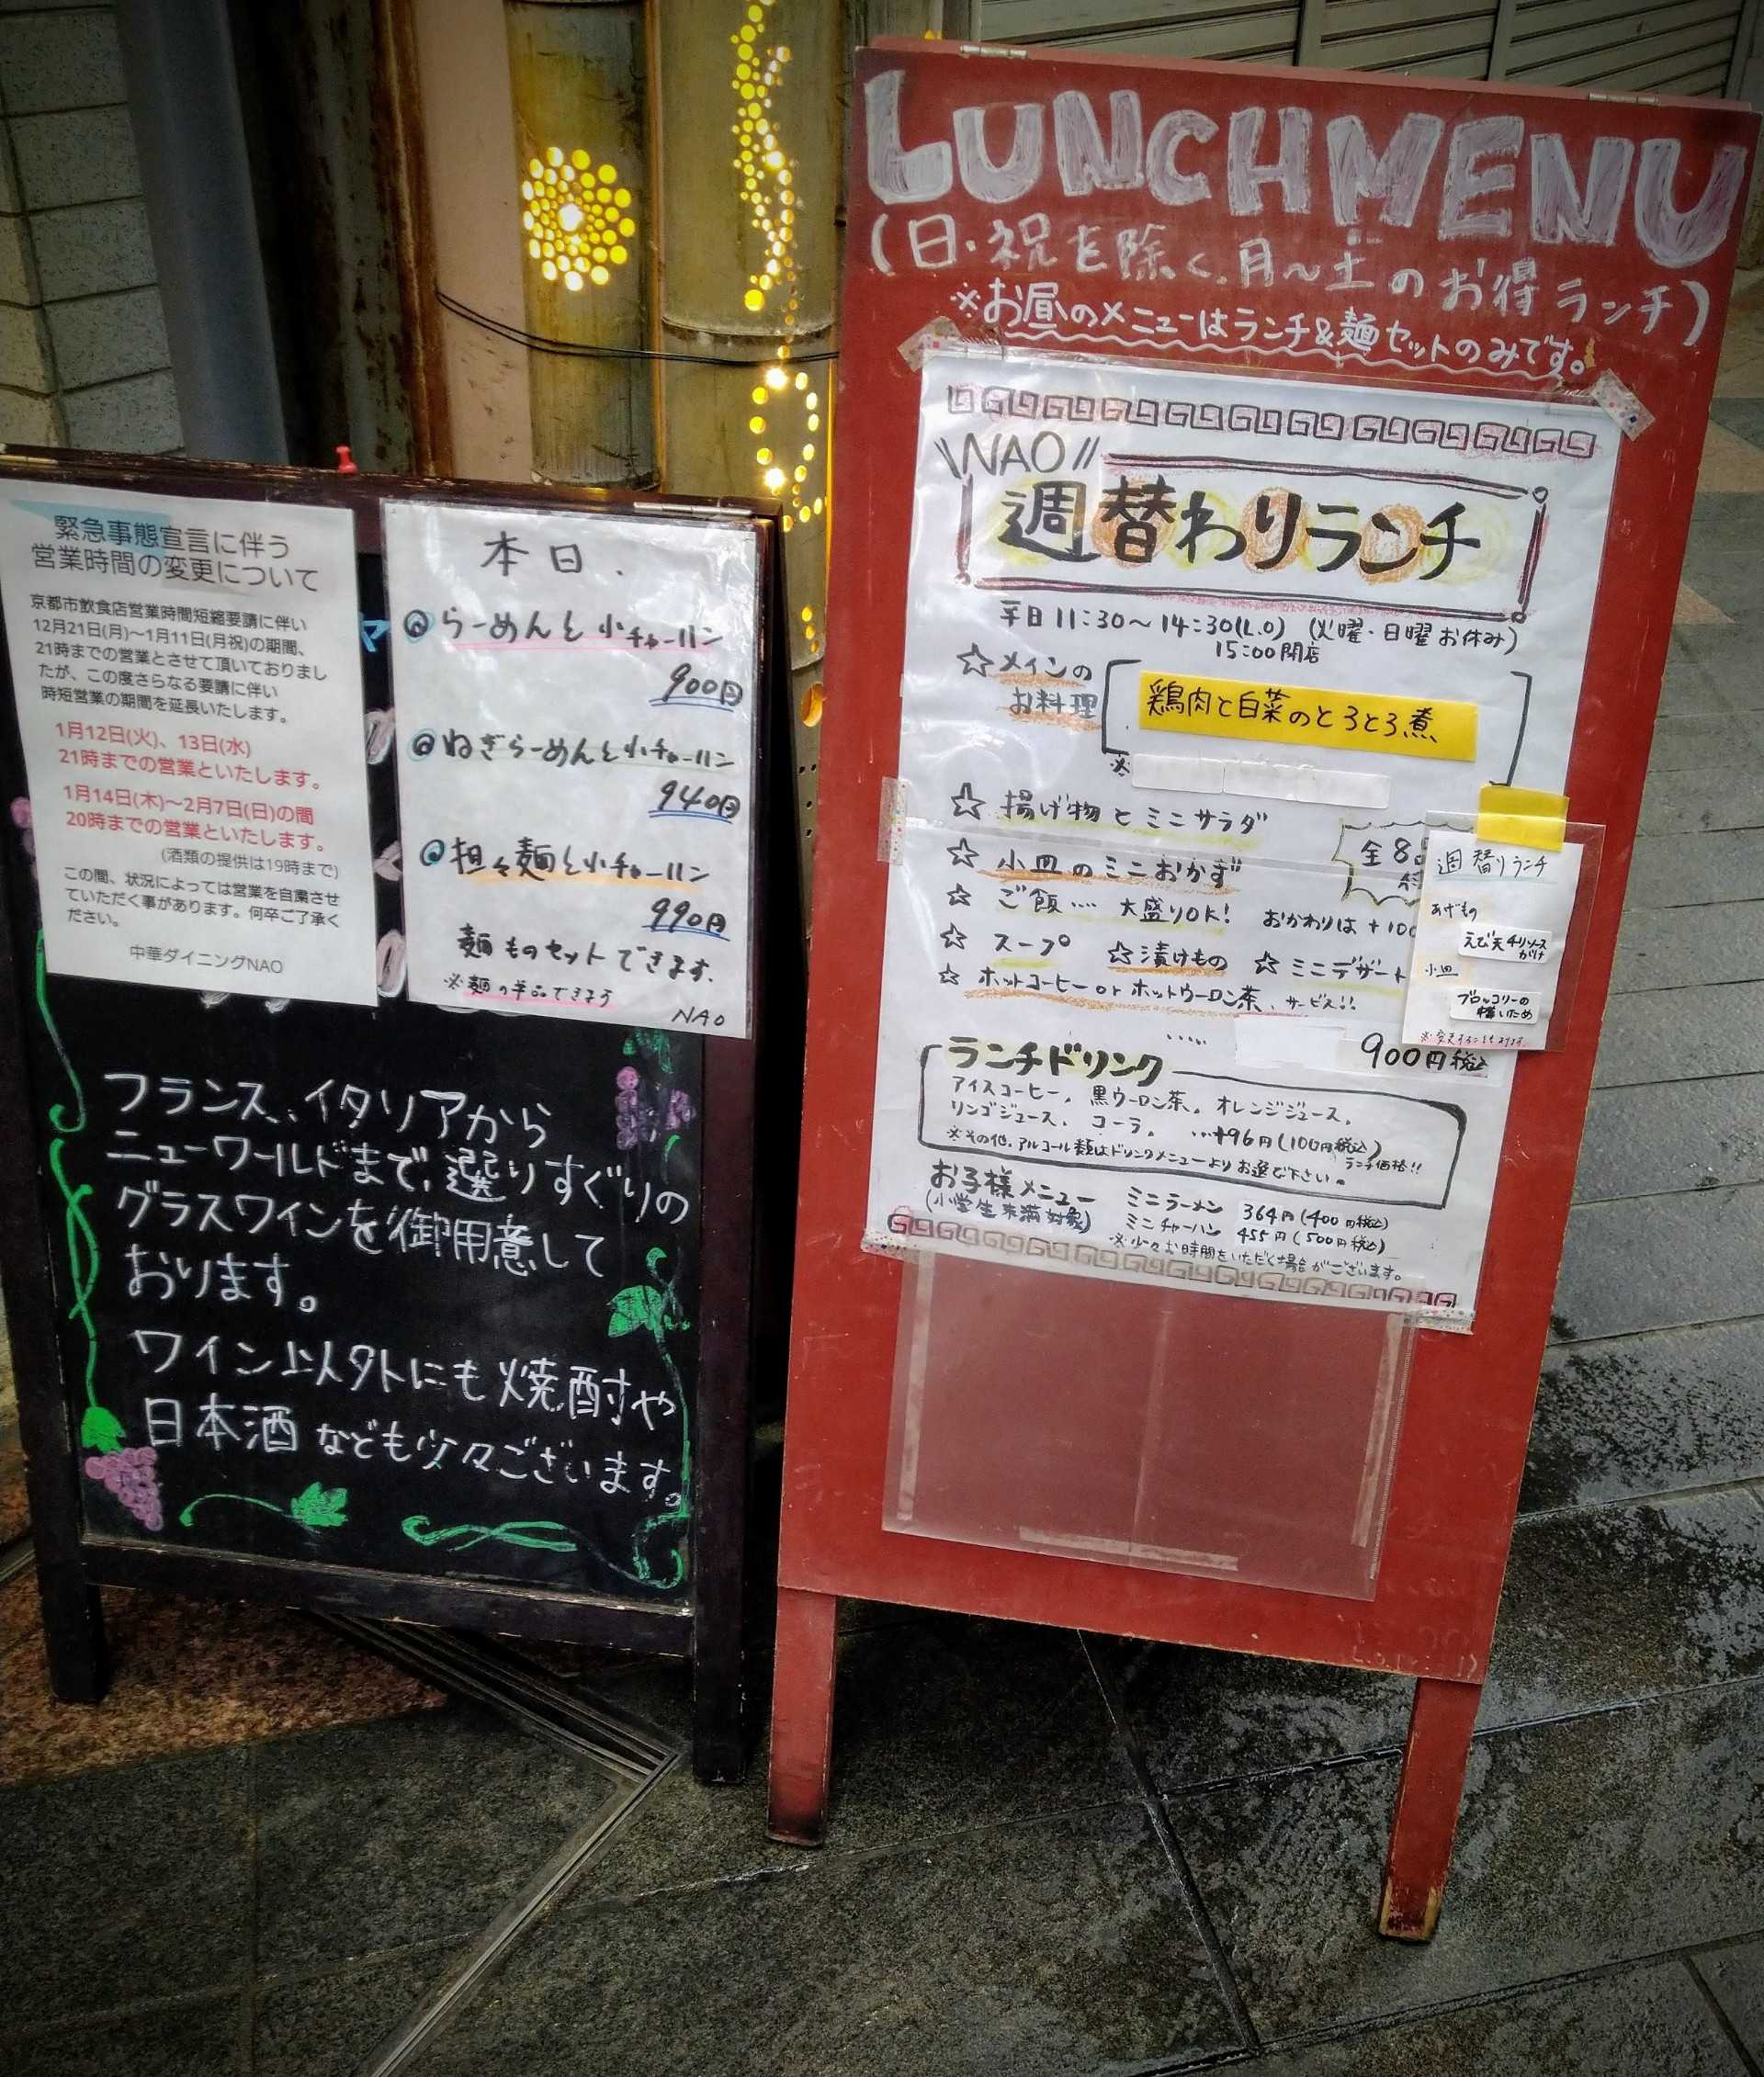 緊急事態宣言に伴う
営業時間の変更について
京都市飲食店営業時間短縮要請に伴い
12月21日(月)～1月11日(月祝)の期間、
21時までの営業とさせて頂いておりまし
たが、この度さらなる要請に伴い
時短営業の期間を延長いたします。
1月12日(火)、13日(水)
21時までの営業といたします。
1月14日(木)～2月7日(日)の間
20時までの営業といたします。
(酒類の提供は19時まで)
この間、状況によっては営業を自粛させ
ていただく事があります。何卒ご了承く
ださい。
中華ダイニングNAO
本日.
@らーめんと小チャーハン
900円
@ねぎらーめんと小チャーハン
940円
@担々麺と小チャーハン
990円
麺ものセットできます.
※麺の単品できます
NAO
フランス、イタリアから
ニューワールドまで、選りすぐりの
グラスワインを御用意して
おります。
ワイン以外にも焼酎や
日本酒なども少々ございます。
LUNCH MENU
(日・祝を除く、月～土のお得ランチ)
※お昼のメニューはランチ&麺セットのみです。
\\NAO//
週替わりランチ
平日 11:30～14:30(L.O) (火曜・日曜お休み)
15:00閉店
☆メインの
お料理
鶏肉と白菜のとろとろ煮
※
☆ 揚げ物とミニサラダ
☆ 小皿のミニおかず
全8
☆ ご飯‥‥ 大盛りOK! おかわりは+100
☆ スープ ☆漬けもの ☆ミニデザート
☆ ホットコーヒー or ホットウーロン茶、サービス!!
‥‥‥ 900円税込
週替りランチ
あげもの
えび天チリソース
がけ
小皿
ブロッコリーの
炒いため
ランチドリンク
アイスコーヒー、黒ウーロン茶、オレンジジュース、
リンゴジュース、コーラ、 …+96円(100円税込)
ランチ価格!!
※その他、アルコール類はドリンクメニューよりお選び下さい。
お子様メニュー
(小学生未満対象)
ミニラーメン 364円(400円税込)
ミニチャーハン 455円(500円税込)
※少々お時間をいただく場合がございます。